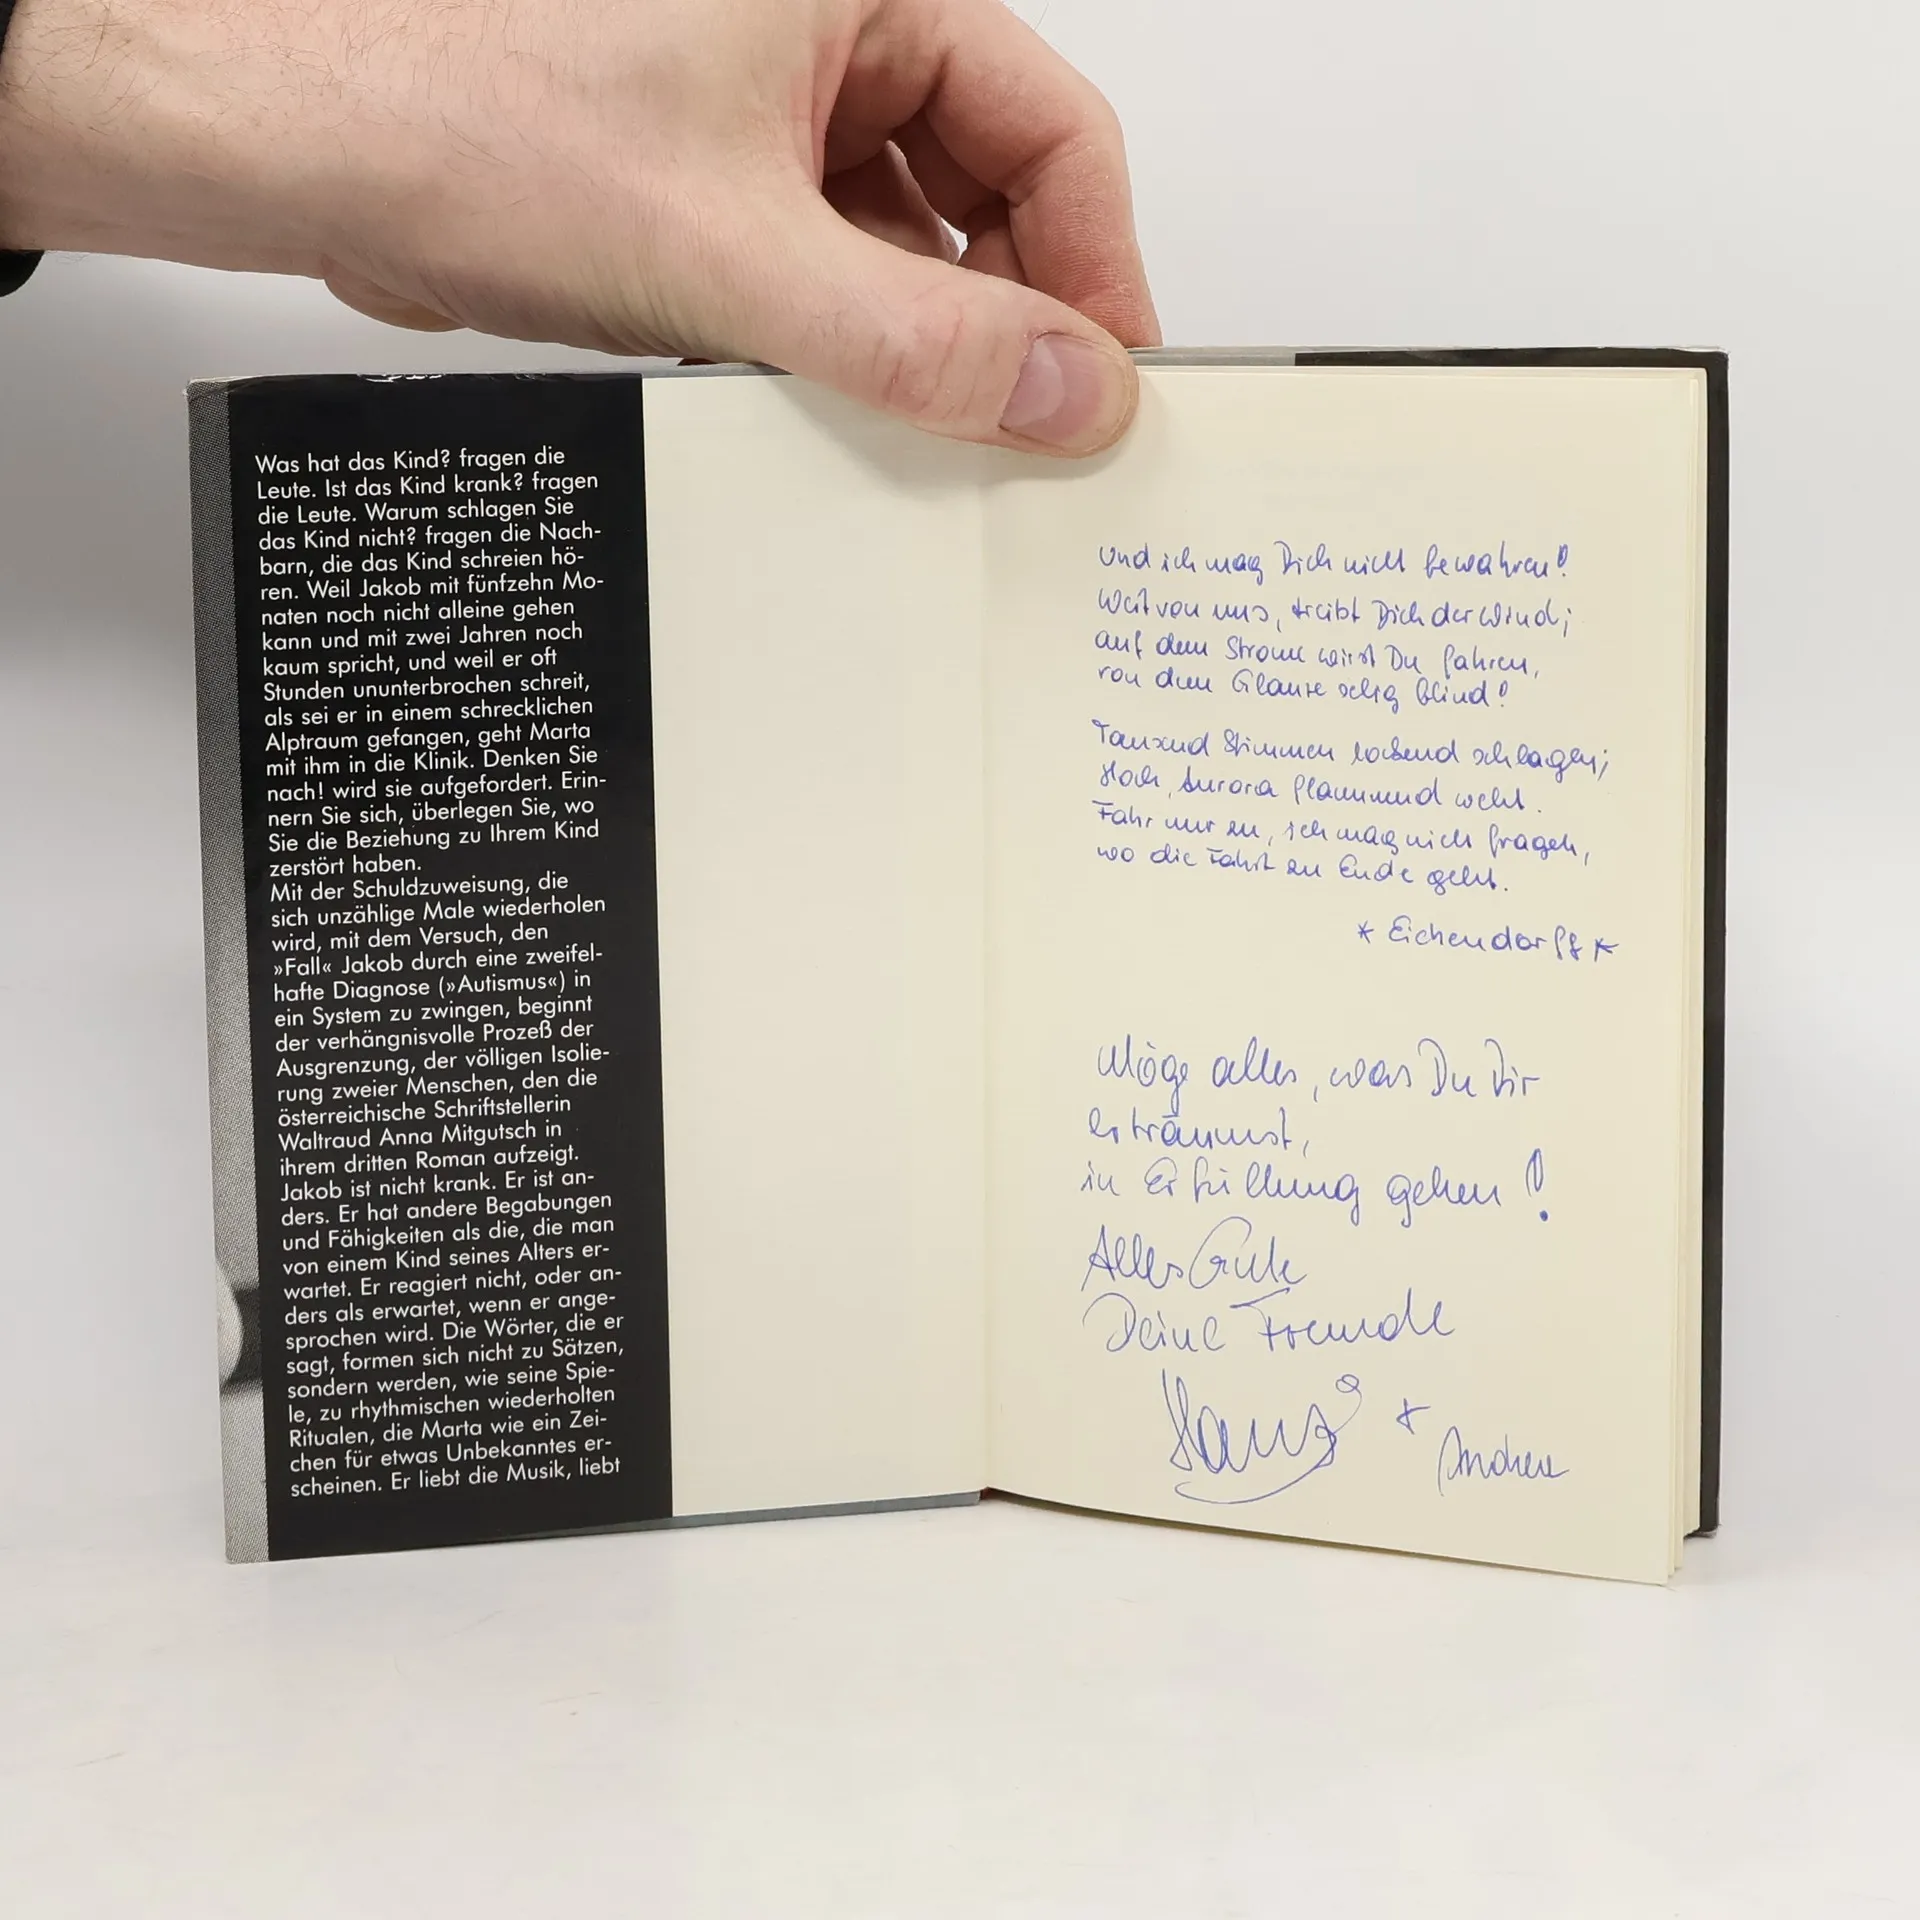 Was hat das Kind? fragen die
Leute. Ist das Kind krank? fragen
die Leute. Warum schlagen Sie
das Kind nicht? fragen die Nach-
barn, die das Kind schreien hö-
ren. Weil Jakob mit fünfzehn Mo-
naten noch nicht alleine gehen
kann und mit zwei Jahren noch
kaum spricht, und weil er oft
Stunden ununterbrochen schreit,
als sei er in einem schrecklichen
Alptraum gefangen, geht Marta
mit ihm in die Klinik. Denken Sie
nach! wird sie aufgefordert. Erin-
nern Sie sich, überlegen Sie, wo
Sie die Beziehung zu Ihrem Kind
zerstört haben.
Mit der Schuldzuweisung, die
sich unzählige Male wiederholen
wird, mit dem Versuch, den
»Fall« Jakob durch eine zweifel-
hafte Diagnose (»Autismus«) in
ein System zu zwingen, beginnt
der verhängnisvolle Prozeß der
Ausgrenzung, der völligen Isolie-
rung zweier Menschen, den die
österreichische Schriftstellerin
Waltraud Anna Mitgutsch in
ihrem dritten Roman aufzeigt.
Jakob ist nicht krank. Er ist an-
ders. Er hat andere Begabungen
und Fähigkeiten als die, die man
von einem Kind seines Alters er-
wartet. Er reagiert nicht, oder an-
ders als erwartet, wenn er ange-
sprochen wird. Die Wörter, die er
sagt, formen sich nicht zu Sätzen,
sondern werden, wie seine Spie-
le, zu rhythmischen wiederholten
Ritualen, die Marta wie ein Zei-
chen für etwas Unbekanntes er-
scheinen. Er liebt die Musik, liebt
Und ich mag Dich nicht bewahren!
Weit von uns, treibt Dich der Wind;
auf dem Strome wirst Du fahren,
von dem Glanze selig blind!
Tausend Stimmen lockend schlagen;
Hoch, Aurora flammend weht.
Fahr nur zu, ich mag nich fragen,
wo die Fahrt zu Ende geht.
* Eichendorff *
Möge alles, was Du Dir
erträumst,
in Erfüllung gehen!
Alles Gute
Deine Freunde
Hans + Andrea